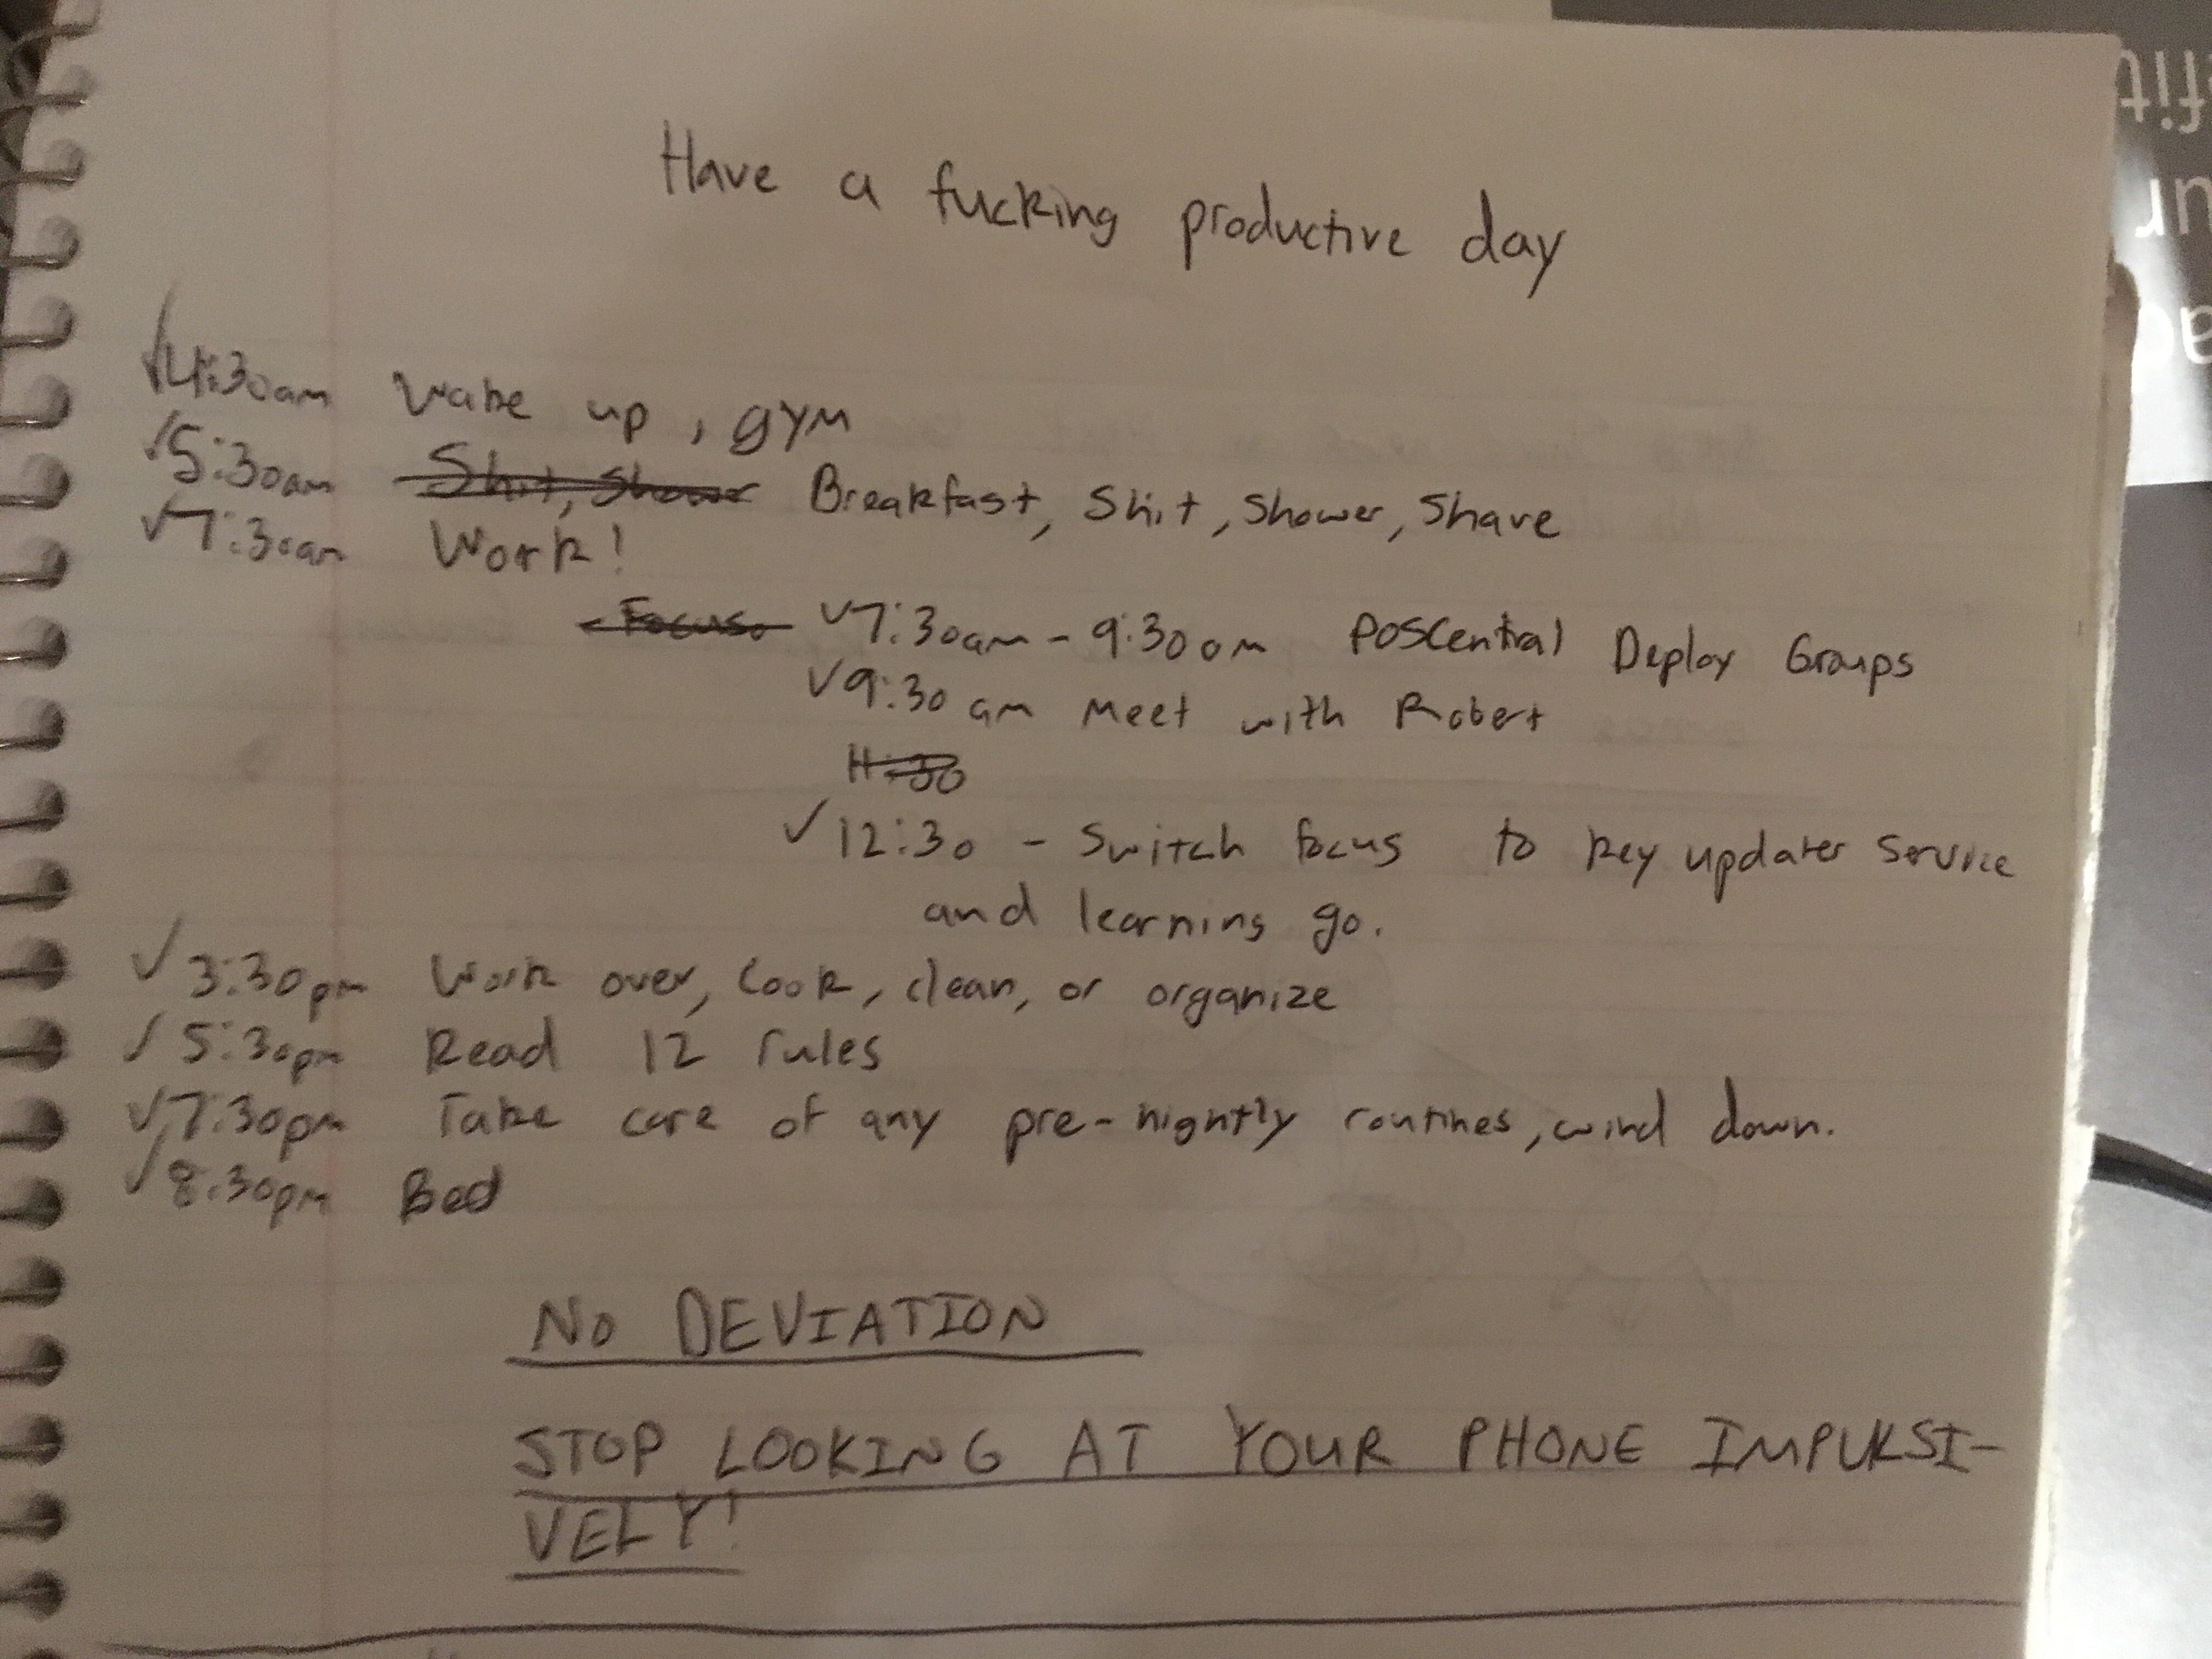 Have a fucking productive day
✓4:30am Wake up, gym
✓5:30am Shit, Shower Breakfast, Shit, Shower, Shave
✓7:30am Work!
Focus. ✓7:30am - 9:30am POSCentral Deploy Groups
✓9:30 am Meet with Robert
✓12:30 - Switch focus to key updater service
and learning go.
✓3:30pm Work over, Cook, clean, or organize
✓5:30pm Read 12 rules
✓7:30pm Take care of any pre-nightly routines, wind down.
✓8:30pm Bed
NO DEVIATION
STOP LOOKING AT YOUR PHONE IMPULSI-
VELY!